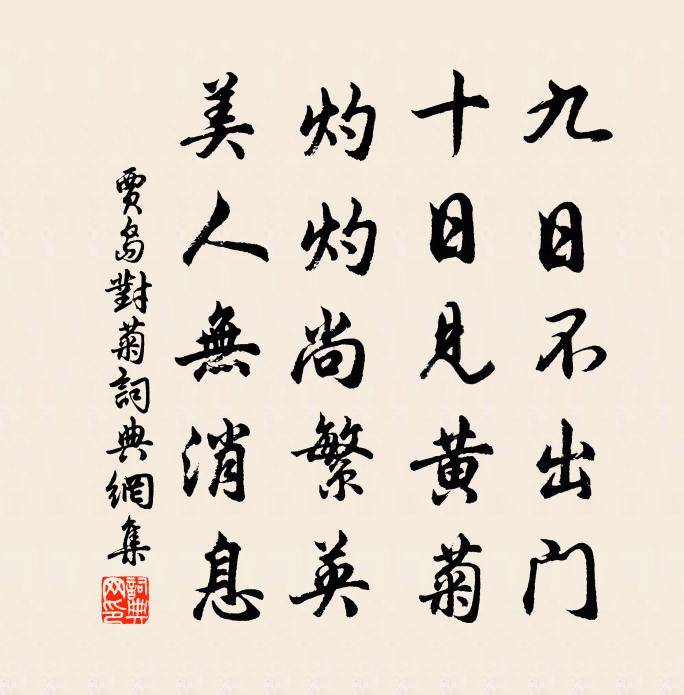 九日不出门
十日見黄菊
灼灼尚繁英
美人無消息
賈島對菊詞典網集
詞典網印